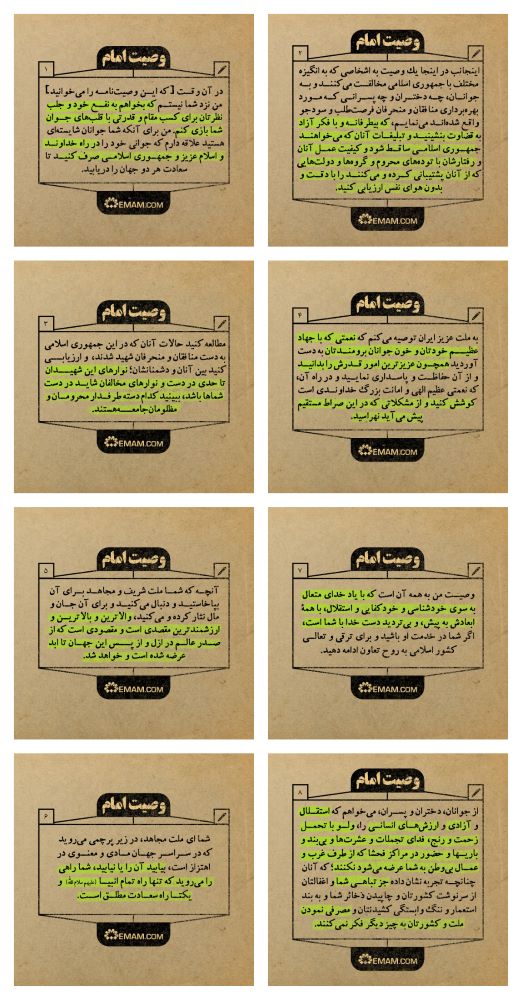 وصیت امام
۱
در آن وقت [که این وصیت‌نامه را می‌خوانید]
من نزد شما نیستم که بخواهم به نفع خود و جلب
نظرتان برای کسب مقام و قدرتی با قلب‌های جوان
شما بازی کنم. من برای آنکه شما جوانان شایسته‌ای
هستید علاقه دارم که جوانی خود را در راه خداوند
و اسلام عزیز و جمهوری اسلامی صرف کنید تا
سعادت هر دو جهان را دریابید.
EMAM.COM
وصیت امام
۲
اینجانب در اینجا یك وصیت به اشخاصی که به انگیزه
مختلف با جمهوری اسلامی مخالفت می‌کنند و به
جوانان، چه دختران و چه پسرانی که مورد
بهره‌برداری منافقان و منحرفان فرصت‌طلب و سودجو
واقع شده‌اند می‌نمایم، که بیطرفانه و با فکر آزاد
به قضاوت بنشینید و تبلیغات آنان که می‌خواهند
جمهوری اسلامی ساقط شود و کیفیت عمل آنان
و رفتارشان با توده‌های محروم و گروه‌ها و دولت‌هایی
که از آنان پشتیبانی کرده و می‌کنند را با دقت و
بدون هوای نفس ارزیابی کنید.
EMAM.COM
وصیت امام
۳
مطالعه کنید حالات آنان که در این جمهوری اسلامی
به دست منافقان و منحرفان شهید شدند، و ارزیابی
کنید بین آنان و دشمنانشان؛ نوارهای این شهیدان
تا حدی در دست و نوارهای مخالفان شاید در دست
شماها باشد، ببینید کدام دسته طرفدار محرومان و
مظلومان جامعه هستند.
EMAM.COM
وصیت امام
۴
به ملت عزیز ایران توصیه می‌کنم که نعمتی که با جهاد
عظیم خودتان و خون جوانان برومندتان به دست
آوردید همچون عزیزترین امور قدرش را بدانید
و از آن حفاظت و پاسداری نمایید و در راه آن،
که نعمتی عظیم الهی و امانت بزرگ خداوندی است
کوشش کنید و از مشکلاتی که در این صراط مستقیم
پیش می‌آید نهراسید.
EMAM.COM
وصیت امام
۵
آنچه که شما ملت شریف و مجاهد برای آن
بپاخاستید و دنبال می‌کنید و برای آن جان و
مال نثار کرده و می‌کنید، والاترین و بالاترین و
ارزشمندترین مقصدی است و مقصودی است که از
صدر عالم در ازل و از پس این جهان تا ابد
عرضه شده است و خواهد شد.
EMAM.COM
وصیت امام
۷
وصیت من به همه آن است که با یاد خدای متعال
به سوی خودشناسی و خودکفایی و استقلال، با همهٔ
ابعادش به پیش، و بی‌تردید دست خدا با شما است،
اگر شما در خدمت او باشید و برای ترقی و تعالی
کشور اسلامی به روح تعاون ادامه دهید.
EMAM.COM
وصیت امام
۶
شما ای ملت مجاهد، در زیر پرچمی می‌روید
که در سراسر جهان مادی و معنوی در
اهتزاز است، بیابید آن را یا نیابید، شما راهی
را می‌روید که تنها راه تمام انبیا (علیهم سلام الله) و
یکتا راه سعادت مطلق است.
EMAM.COM
وصیت امام
۸
از جوانان، دختران و پسران، می‌خواهم که استقلال
و آزادی و ارزش‌های انسانی را، ولو با تحمل
زحمت و رنج، فدای تجملات و عشرت‌ها و بی‌بند و
باریها و حضور در مراکز فحشا که از طرف غرب و
عمال بی‌وطن به شما عرضه می‌شود نکنند؛ که آنان
چنانچه تجربه نشان داده جز تباهی شما و اغفالتان
از سرنوشت کشورتان و چاپیدن ذخائر شما و به بند
استعمار و ننگ وابستگی کشیدنتان و مصرفی نمودن
ملت و کشورتان به چیز دیگر فکر نمی‌کنند.
EMAM.COM